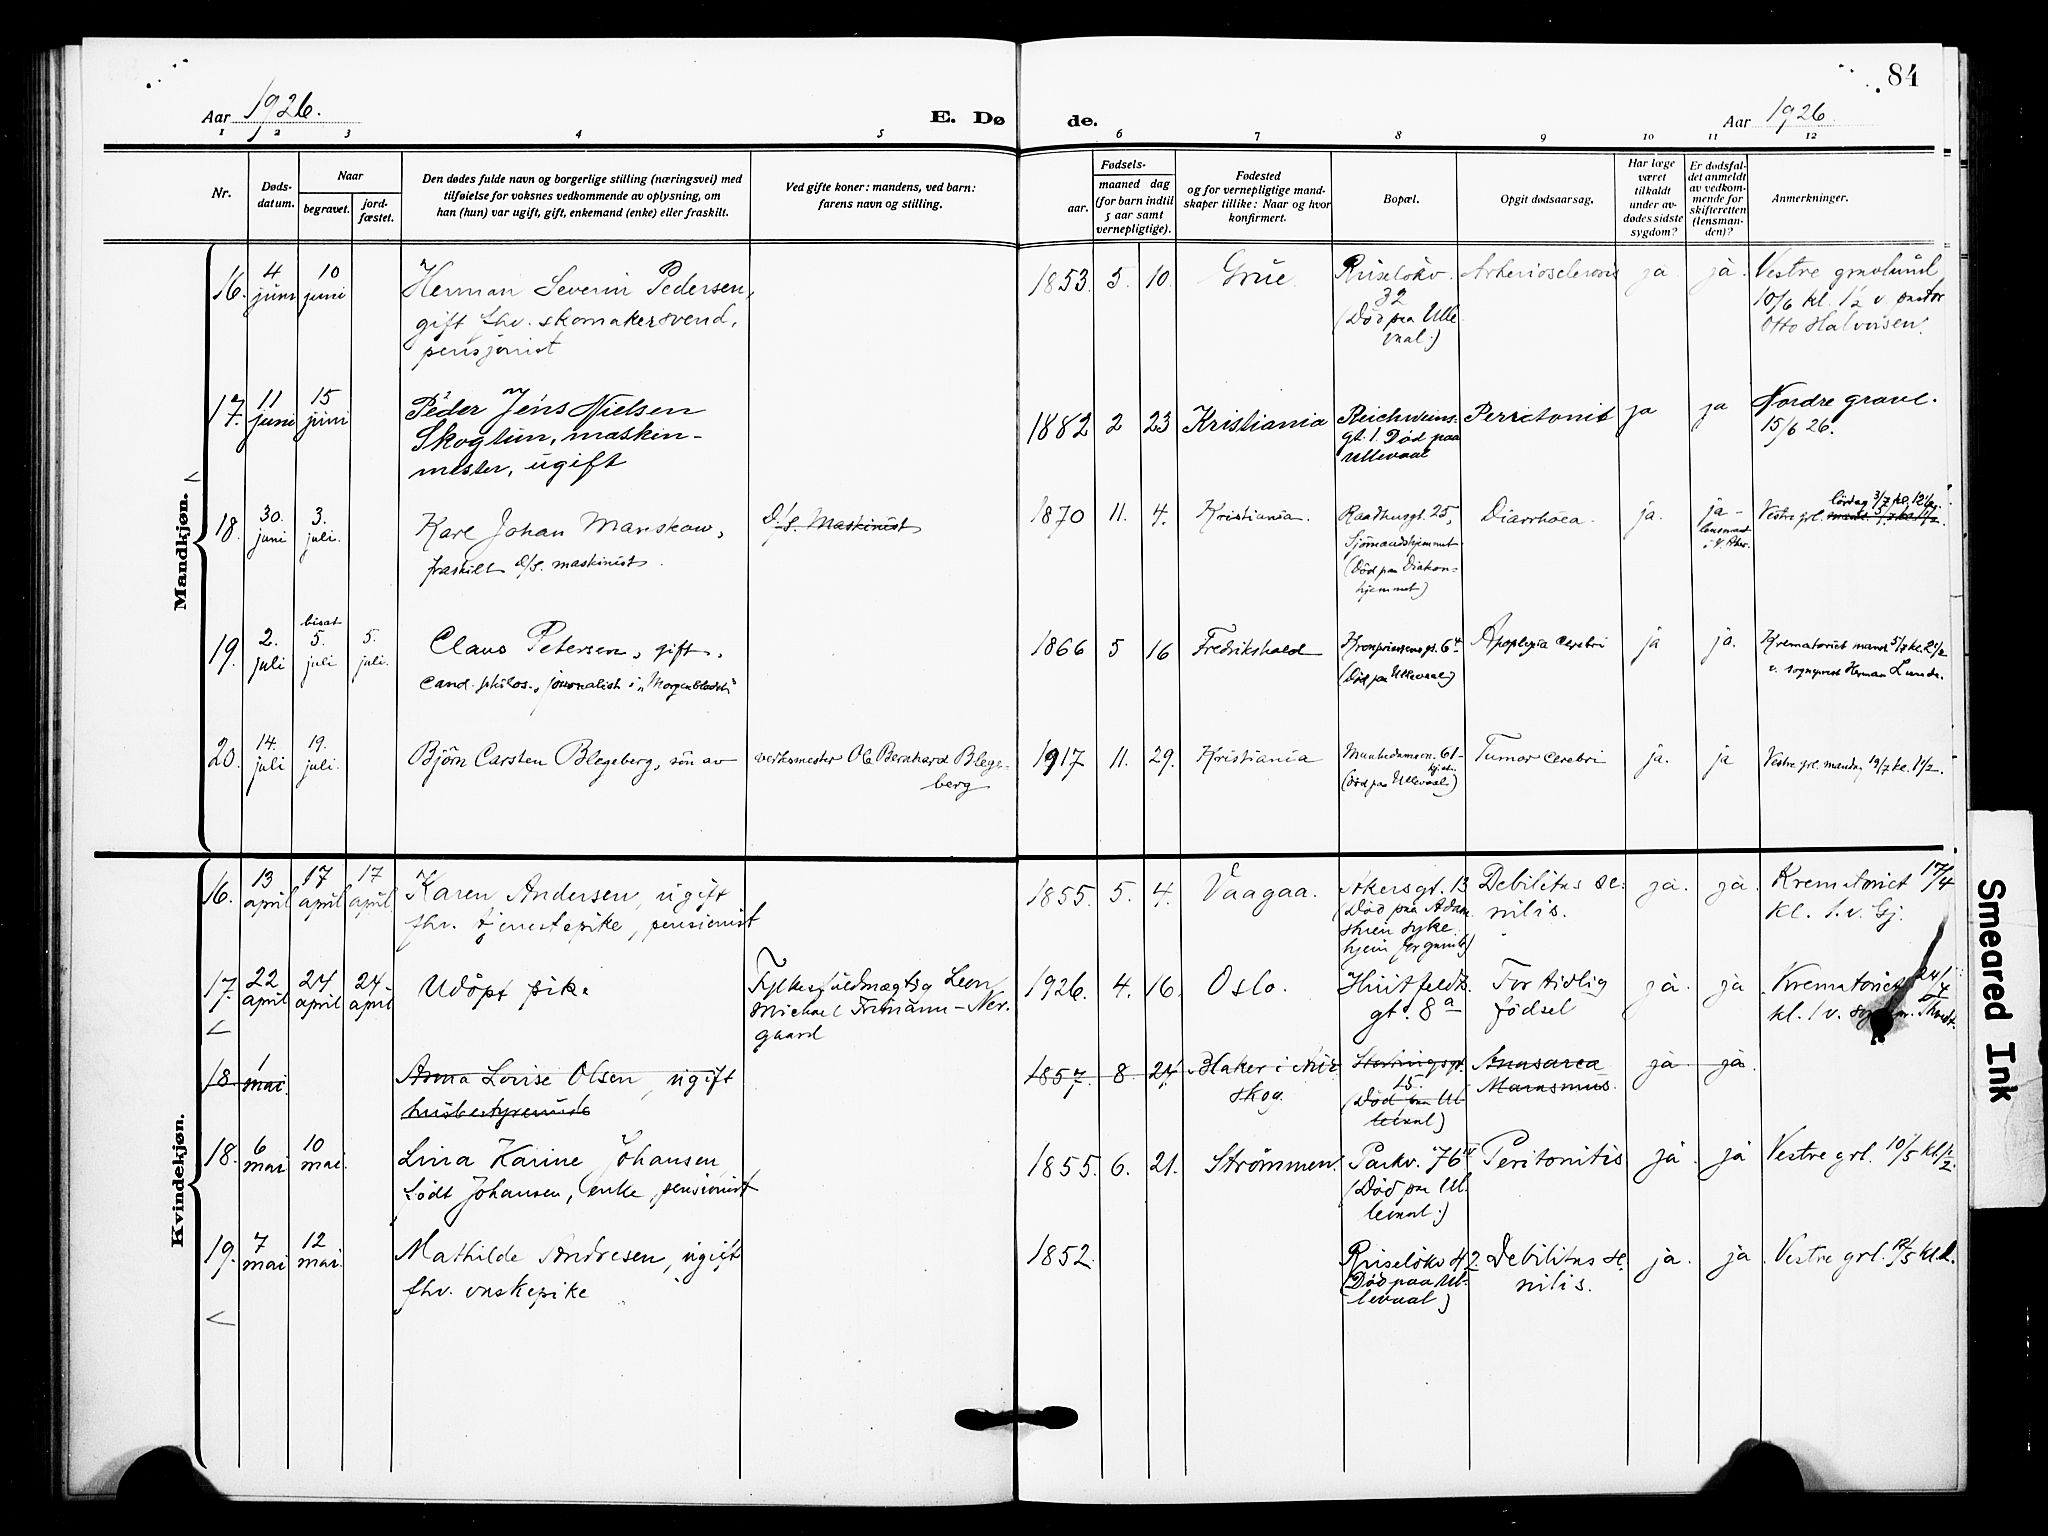 84
Aar 1926.
E. Dø
de.
Aar 1926
1 2 3 4 5 6 7 8 9 10 11 12
Nr.
Døds-
datum.
Naar
begravet.
jord-
fæstet.
Den dødes fulde navn og borgerlige stilling (næringsvei) med
tilføielse for voksnes vedkommende av oplysning, om
han (hun) var ugift, gift, enkemand (enke) eller fraskilt.
Ved gifte koner: mandens, ved barn:
farens navn og stilling.
Fødsels-
aar.
maaned dag
(for barn indtil
5 aar samt
vernepligtige).
Fødested
og for vernepligtige mand-
skaper tillike: Naar og hvor
konfirmert.
Bopæl.
Opgit dødsaarsag.
Har læge
været
tilkaldt
under av-
dødes sidste
sygdom?
Er dødsfal-
det anmeldt
av vedkom-
mende for
skifteretten
(lensman-
den)?
Anmerkninger.
Mandkjøn.
16. 4 juni 10 juni
Herman Severin Pedersen,
gift fhv. skomakersvend,
pensjonist
1853. 5. 10. Grue
Ruseløkv.
32
(Død paa Ulle
vaal.)
Arteriosclerosis ja. ja.
Vestre gravlund
10/6 kl. 1½ v. pastor
Otto Halvorsen.
17. 11 juni 15 juni
Peder Jens Nielsen
Skoglun, maskin-
mester, ugift
1882 2 23 Kristiania
Reichweins-
gt. 1. Død paa
Ullevaal
Perietonit ja ja
Nordre gravl.
15/6 26.
18. 30. juni 3. juli.
Karl Johan Manskow,
fraskilt D/S. maskinist.
D/S. Maskinist
1870 11. 4. Kristiania.
Raadhusgt. 25,
Sjömandshjemmet
(Död paa Diakon-
hjemmet)
Diarrhoea. ja.
ja -
lensmand
i V. Aker.
Vestre grl. lördag 3/7 kl. 12½
19. 2. juli bisat 5. juli 5. juli.
Claus Petersen, gift,
cand. philos., journalist i „Morgenbladet"
1866 5 16 Fredrikshald
Kronprinsensgt. 6
(Död paa Ullevaal)
Apoplexia cerebri ja ja.
Krematoriet mand. 5/7 kl. 2½
v. sogneprest Herman Lunde.
20. 14. juli 19. juli.
Björn Carsten Blegeberg, sön av
verksmester Ole Bernhard Blege-
berg
1917 11. 29. Kristiania
Munkedamsvn. 61
(Död paa Ullevaal)
Tumor cerebri ja. ja
Vestre grl. mandag 19/7 kl. 1½.
Kvindekjøn.
16. 13 april 17 april 17 april.
Karen Andersen, ugift
fhv. tjenestepike, pensionist
1855. 5. 4. Vaagaa.
Akersgt. 13
(Død paa Adam
Hiens syke
hjem
Debilitas se-
nilis.
ja. ja.
Krematoriet 17/4
kl. 1. v. Gj.
17. 22 april 24 april 24 april
Udöpt pike
Fylkesfuldmægtig Leon
Michael Trimann-Ner-
gaard
1926. 4. 16. Oslo.
Huitfeldts
gt. 8a
For tidlig
fødsel
ja. ja
Krematoriet 24/4
kl. 1 v.
18. 1 mai.
Anna Lovise Olsen, ugift
husbestyrerinde
1857. 8. 24. Blaker i Aur
skog.
15.
(Død paa Ul-
levaal)
Anasarca
Marasmus.
ja. ja.
18. 6 mai 10 mai.
Lina Karine Johansen
født Johansen, enke, pensionist
1855. 6. 21. Strømmen.
Parkv. 76 IV
(Død paa Ul-
levaal.)
Peritonitis ja. ja
Vestre grl. 10/5 kl. 1½.
19. 7 mai 12 mai.
Mathilde Andresen, ugift
fhv. vaskepike
1852.
Ruseløkv 42.
(Død paa Ul-
levaal)
Debilitas se-
nilis.
ja. ja
Vestre grl. 12/5 kl. 1.
Smeared Ink